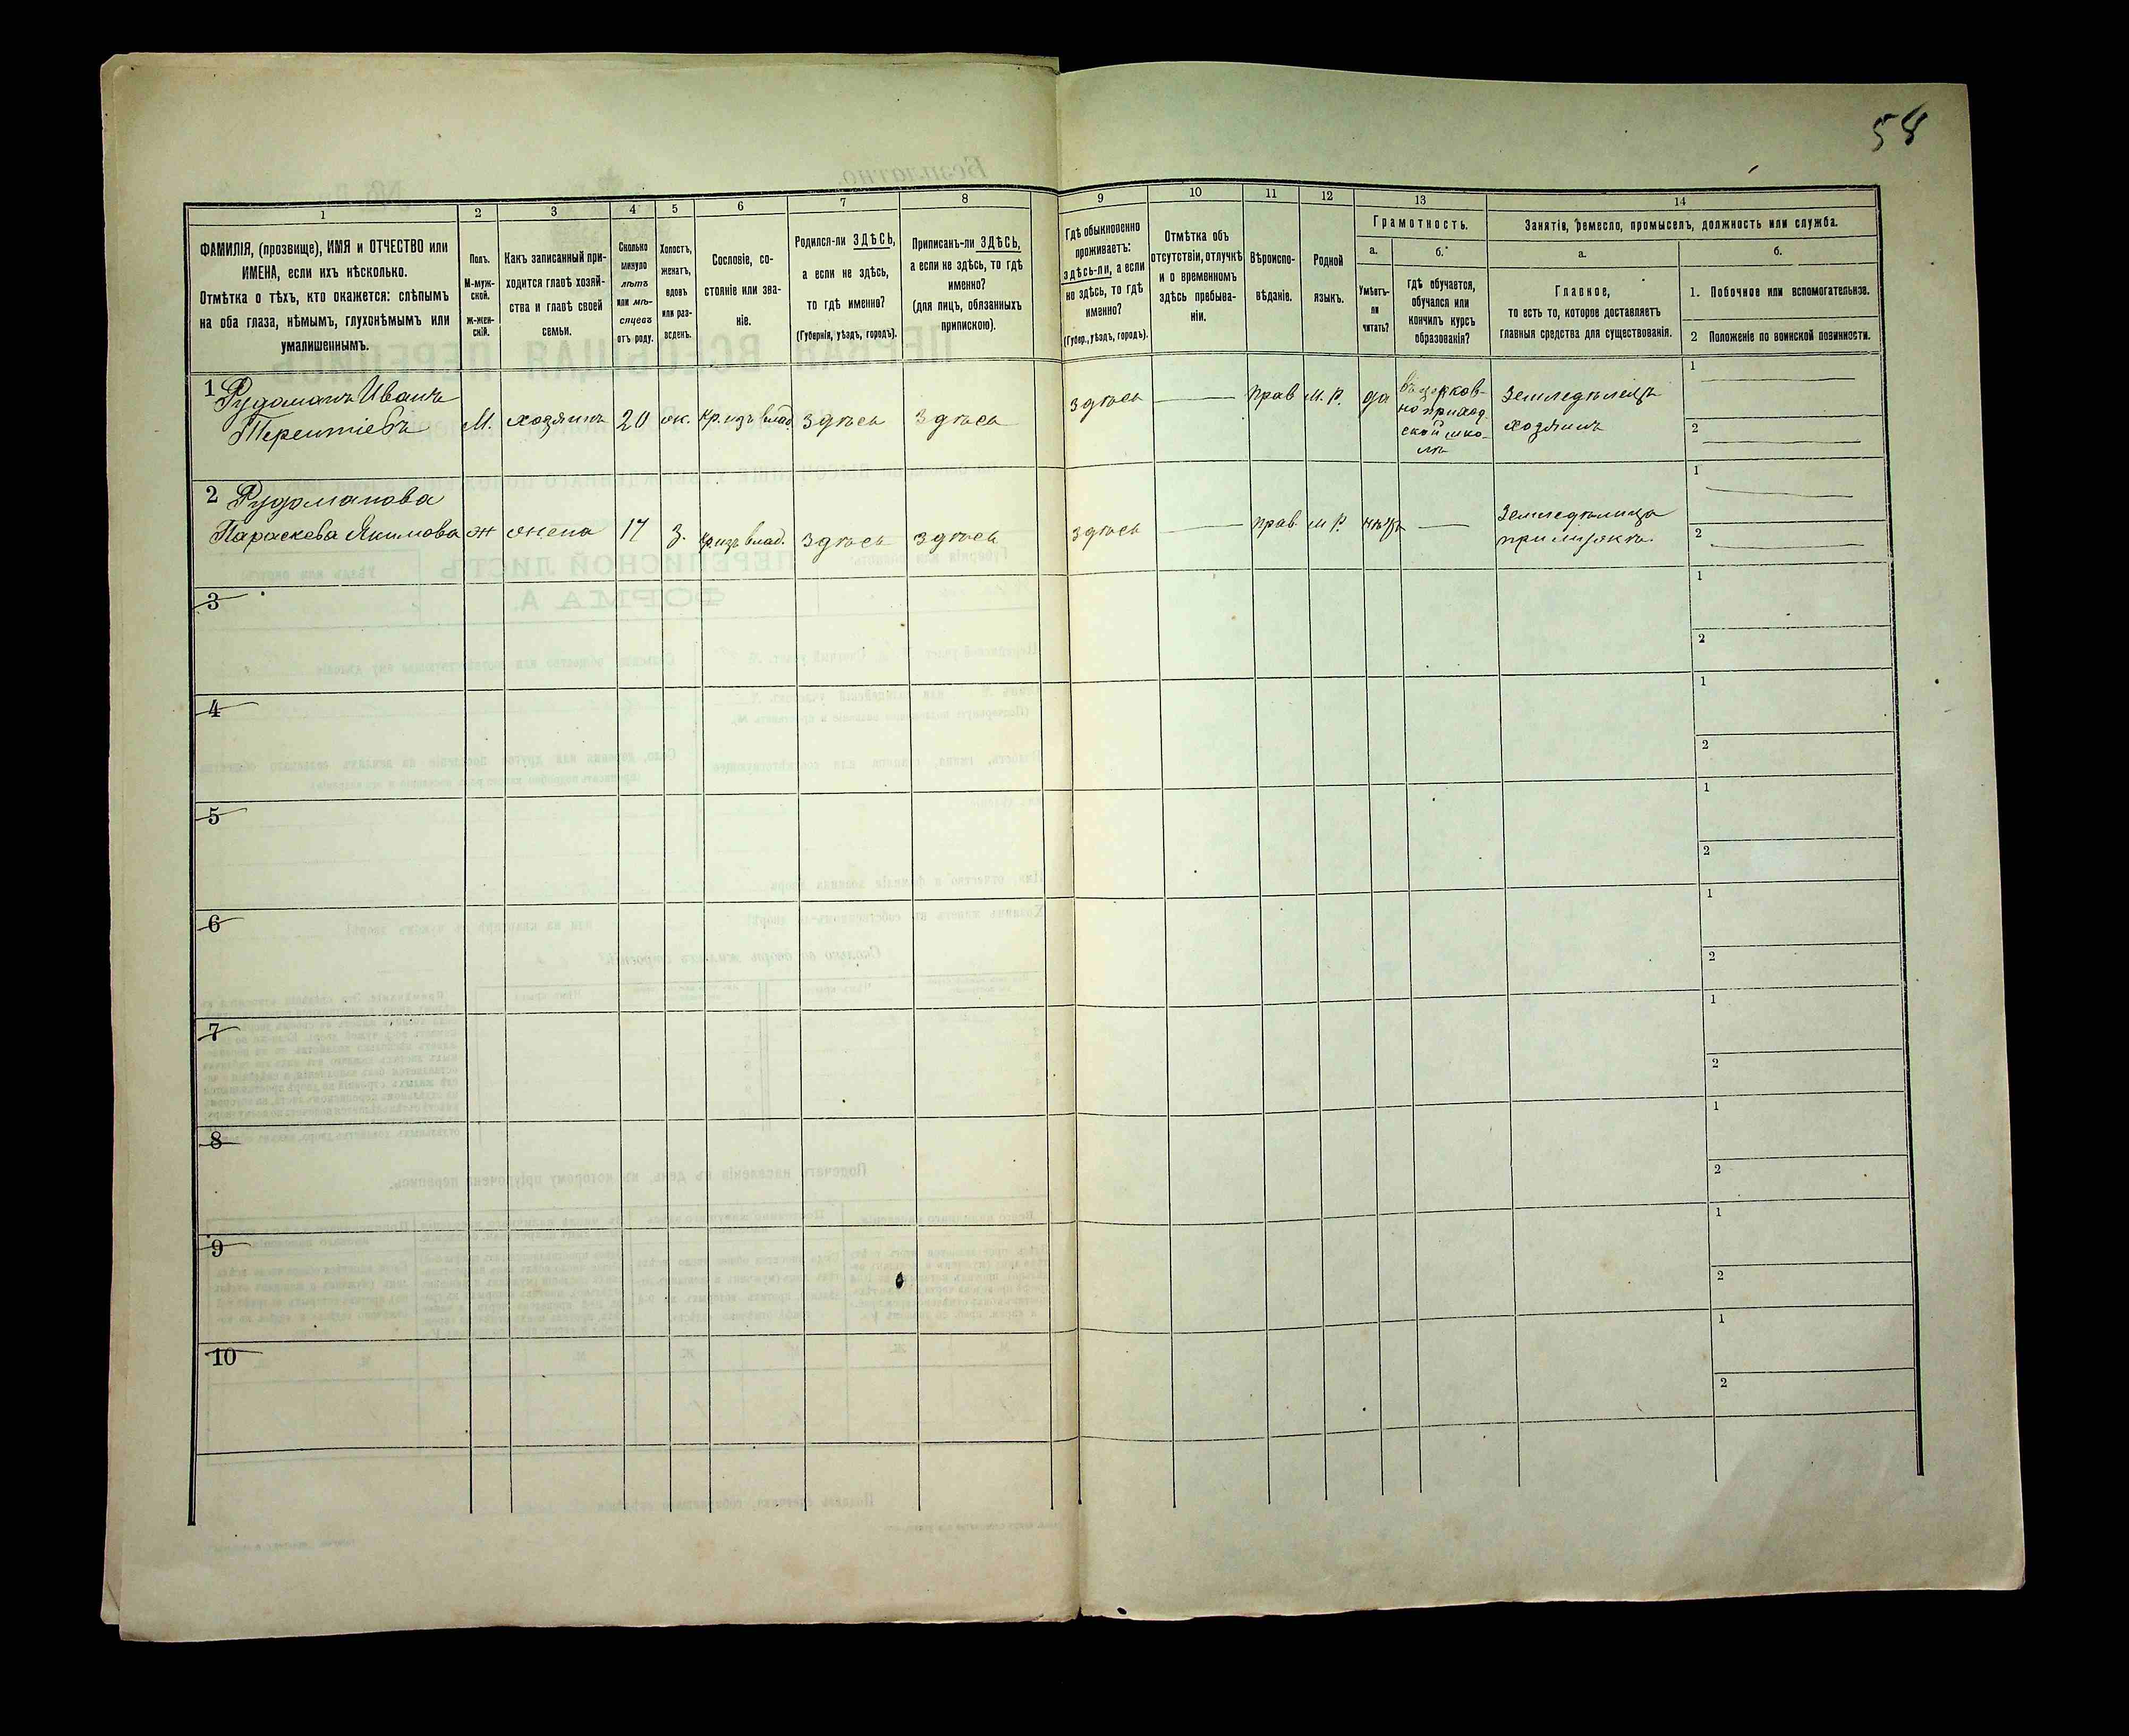 58
1
2
3
4
5
6
7
8
9
10
11
12
13
14
ФАМИЛІЯ, (прозвище), ИМЯ и ОТЧЕСТВО или
ИМЕНА, если ихъ нѣсколько.
Отмѣтка о тѣхъ, кто окажется: слѣпымъ
на оба глаза, нѣмымъ, глухонѣмымъ или
умалишеннымъ.
Полъ.
М-муж-
ской.
Ж-жен-
скій.
Какъ записанный при-
ходится главѣ хозяй-
ства и главѣ своей
семьи.
Сколько
минуло
лѣтъ
или мѣ-
сяцевъ
отъ роду.
Холостъ,
женатъ,
вдовъ
или раз-
веденъ.
Сословіе, со-
стояніе или зва-
ніе.
Родился-ли ЗДѢСЬ,
а если не здѣсь,
то гдѣ именно?
(Губернія, уѣздъ, городъ).
Приписанъ-ли ЗДѢСЬ,
а если не здѣсь, то гдѣ
именно?
(для лицъ, обязанныхъ
припискою).
Гдѣ обыкновенно
проживаетъ:
здѣсь-ли, а если
не здѣсь, то гдѣ
именно?
(Губер., уѣздъ, городъ).
Отмѣтка объ
отсутствіи, отлучкѣ
и о временномъ
здѣсь пребыва-
ніи.
Вѣроиспо-
вѣданіе.
Родной
языкъ.
Грамотность.
а.
Умѣетъ-
ли
читать?
б.
гдѣ обучается,
обучался или
кончилъ курсъ
образованія?
Занятіе, ремесло, промыселъ, должность или служба.
а.
Главное,
то есть то, которое доставляетъ
главныя средства для существованія.
б.
1. Побочное или вспомогательное.
2 Положеніе по воинской повинности.
1 Рудоманъ Иванъ
Терентіевъ
М.
хозяинъ
20
ж.
кр. изъ влад.
здѣсь
здѣсь
здѣсь
прав
м. р.
да
въ церков-
но приход
ской шко-
лѣ
Земледѣлецъ
хозяинъ
1
2
2 Рудоманова
Параскева Якимова
ж
жена
17
З.
кр. изъ влад.
здѣсь
здѣсь
здѣсь
прав
м р.
нѣтъ
Земледѣлица
1
2
3
1
2
4
1
2
5
1
2
6
1
2
7
1
2
8
1
2
9
1
2
10
1
2